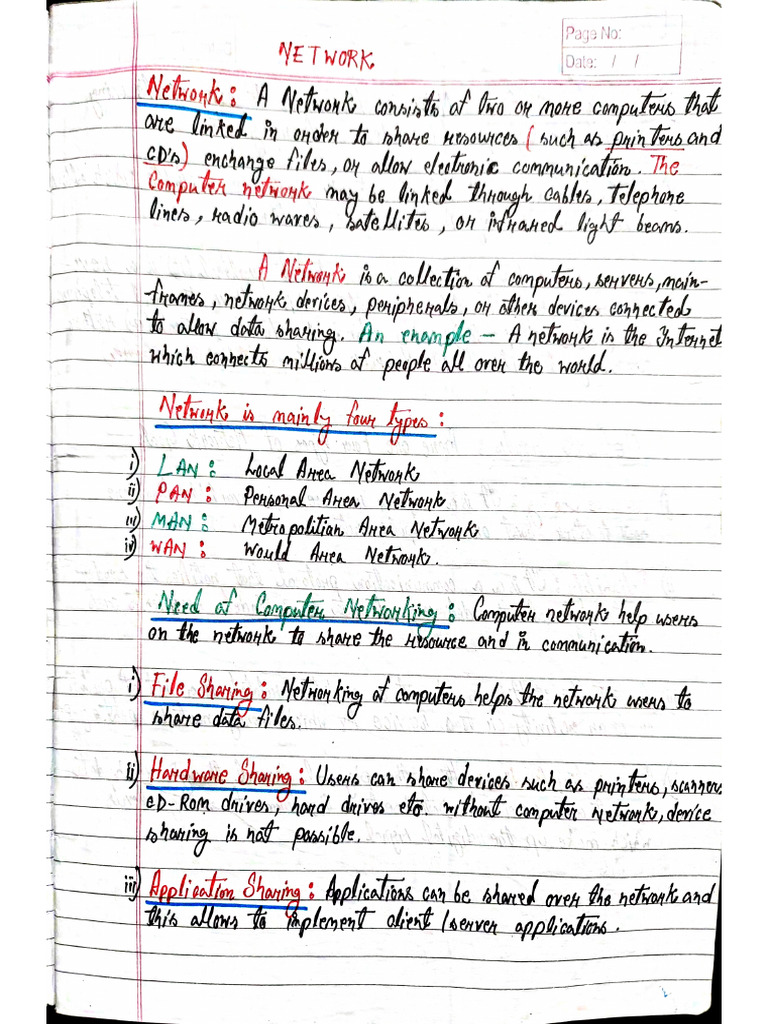 Page No:
Date: / /
NETWORK
Network: A Network consists of two or more computers that
are linked in order to share resources ( such as printers and
CD's) exchange files, or allow electronic communication. The
Computer network may be linked through cables, telephone
lines, radio waves, satellites, or infrared light beams.
A Network is a collection of computers, servers, main-
frames, network devices, peripherals, or other devices connected
to allow data sharing. An example – A network is the Internet
which connects millions of people all over the world.
Network is mainly four types:
i) LAN: Local Area Network
ii) PAN: Personal Area Network
iii) MAN: Metropolitian Area Network
iv) WAN: Would Area Network.
Need of Computer Networking: Computer network help users
on the network to share the resource and in communication.
i) File Sharing: Networking of computers helps the network users to
share data files.
ii) Hardware Sharing: Users can share devices such as printers, scanners
CD-ROM drives, hard drives etc. without computer network, device
sharing is not possible.
iii) Application Sharing: Applications can be shared over the network and
this allows to implement client/server applications.